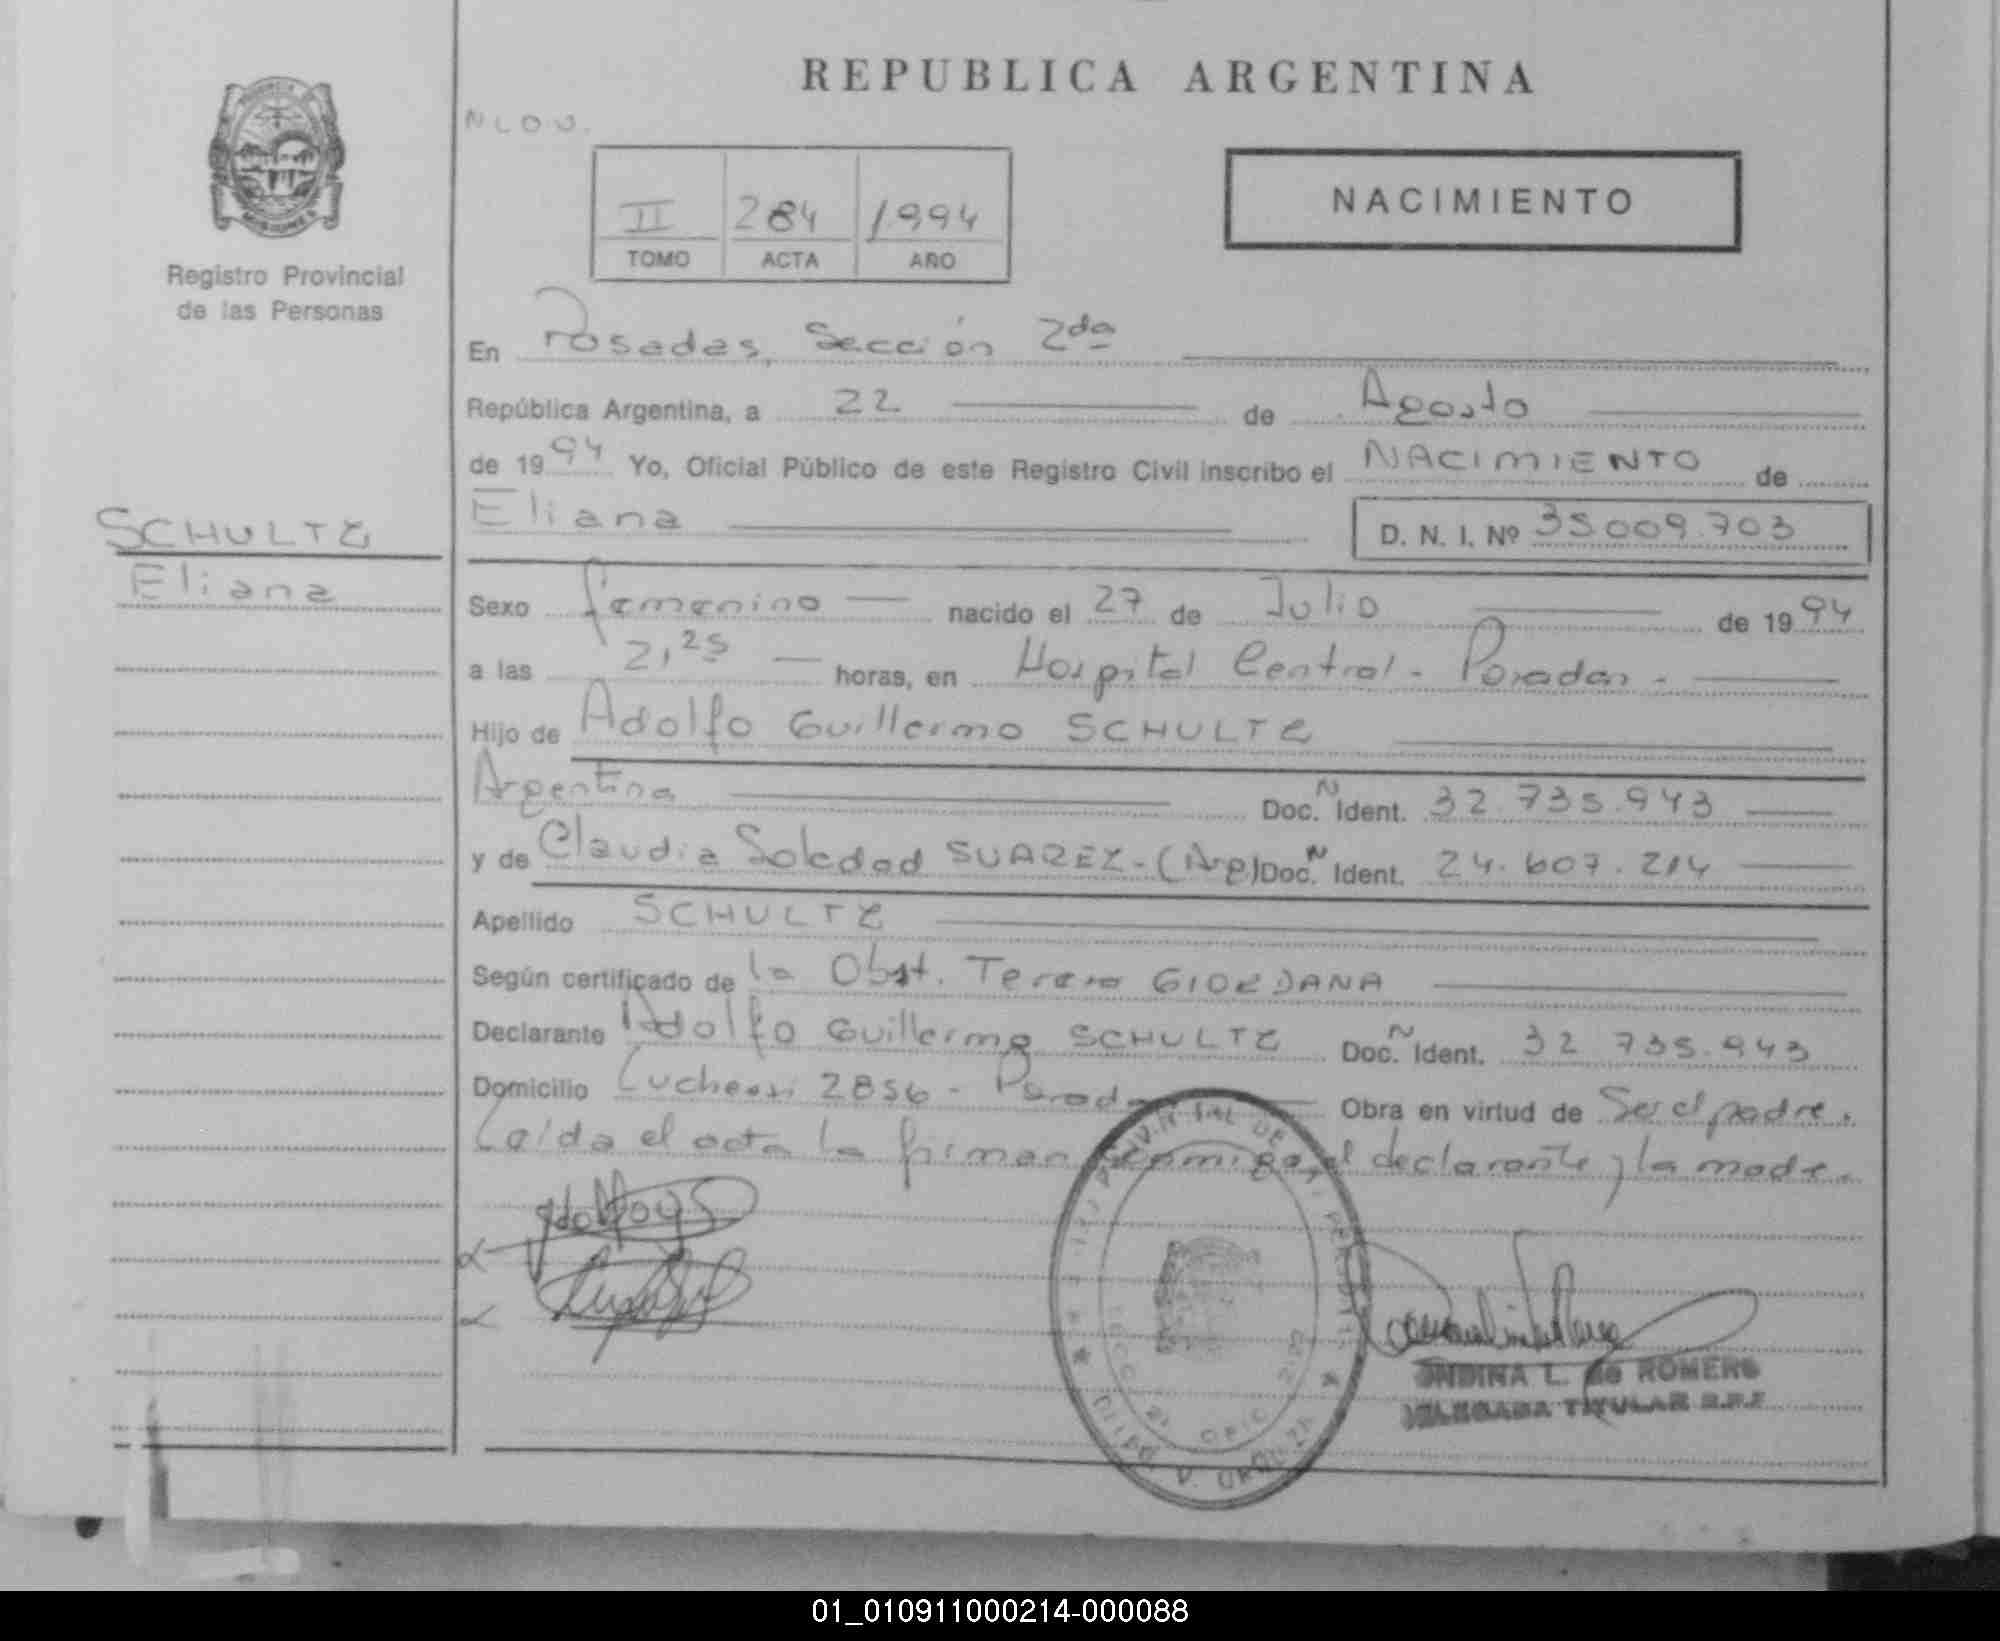 REPUBLICA ARGENTINA
NLOU.
NACIMIENTO
II 284 1994
TOMO ACTA AÑO
Registro Provincial
de las Personas
En Posadas, Sección 2da
República Argentina, a 22 de Agosto
de 1994 Yo, Oficial Público de este Registro Civil inscribo el NACIMIENTO de
Eliana D. N. I. Nº 35009.703
SCHULTZ
Eliana
Sexo femenino nacido el 27 de Julio de 1994
a las 2,25 horas, en Hospital Central - Posadas -
Hijo de Adolfo Guillermo SCHULTZ
Argentina Doc. N Ident. 32.735.943
y de Claudia Soledad SUAREZ - (Arg) Doc. N Ident. 24.607.214
Apellido SCHULTZ
Según certificado de la Obst. Teresa GIORDANA
Declarante Adolfo Guillermo SCHULTZ Doc. N Ident. 32 735.943
Domicilio Luchessi 2856 - Posadas Obra en virtud de Ser el padre.
Leída el acta la firman conmigo, el declarante y la madre.
ONDINA L. de ROMERO
DELEGADA TITULAR R.P.P
01_010911000214-000088